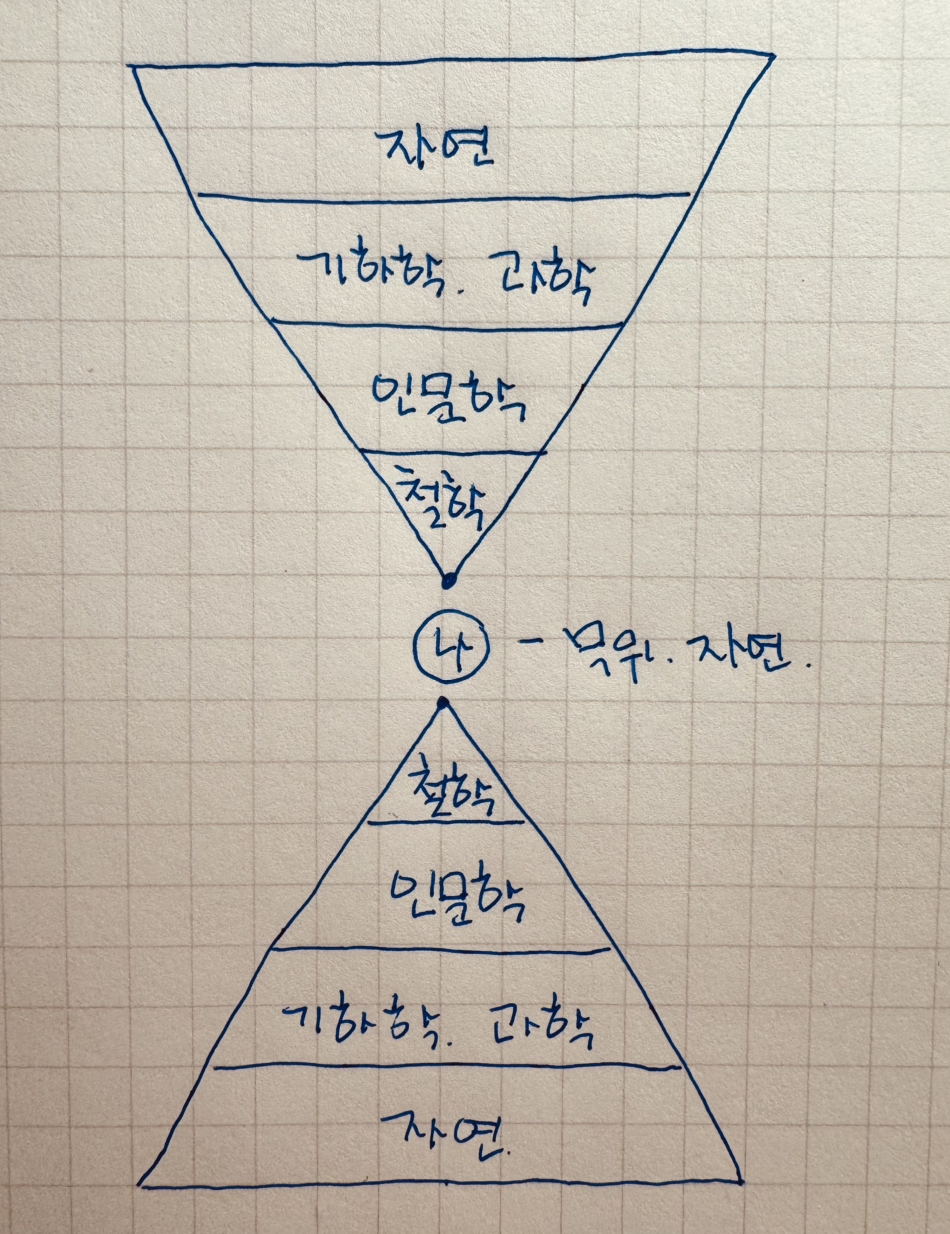 자연
기하학. 과학
인문학
철학
나 - 무위. 자연.
철학
인문학
기하학. 과학
자연.